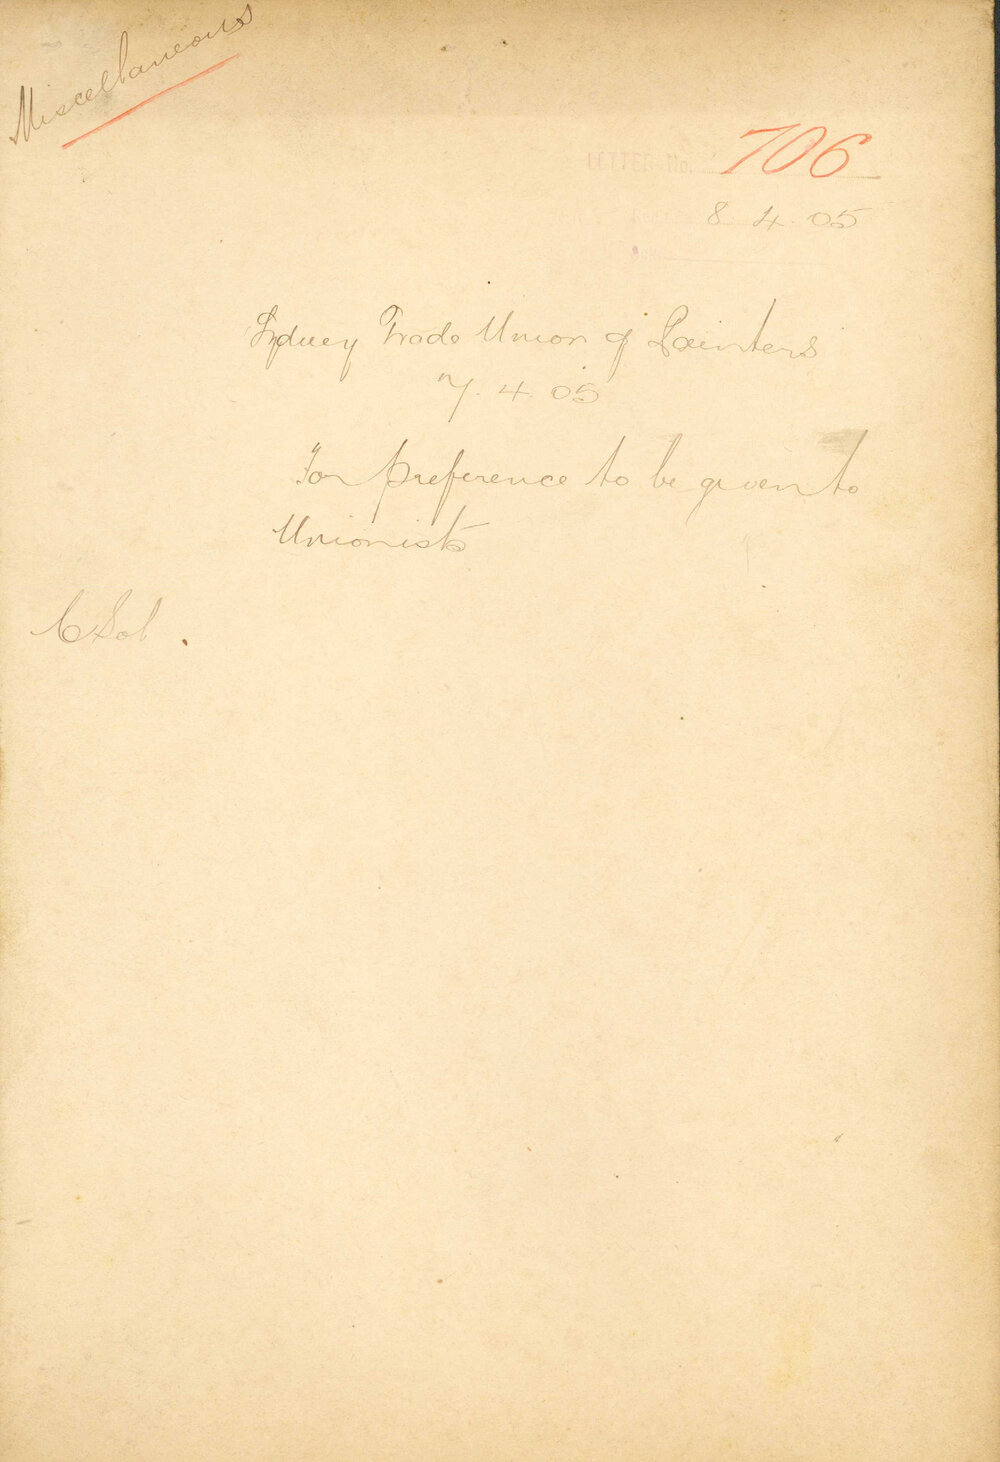 Miscellaneous
LETTER No. 706
8. 4. 05
Sydney Trade Union of Painters
7. 4. 05
For preference to be given to
Unionists